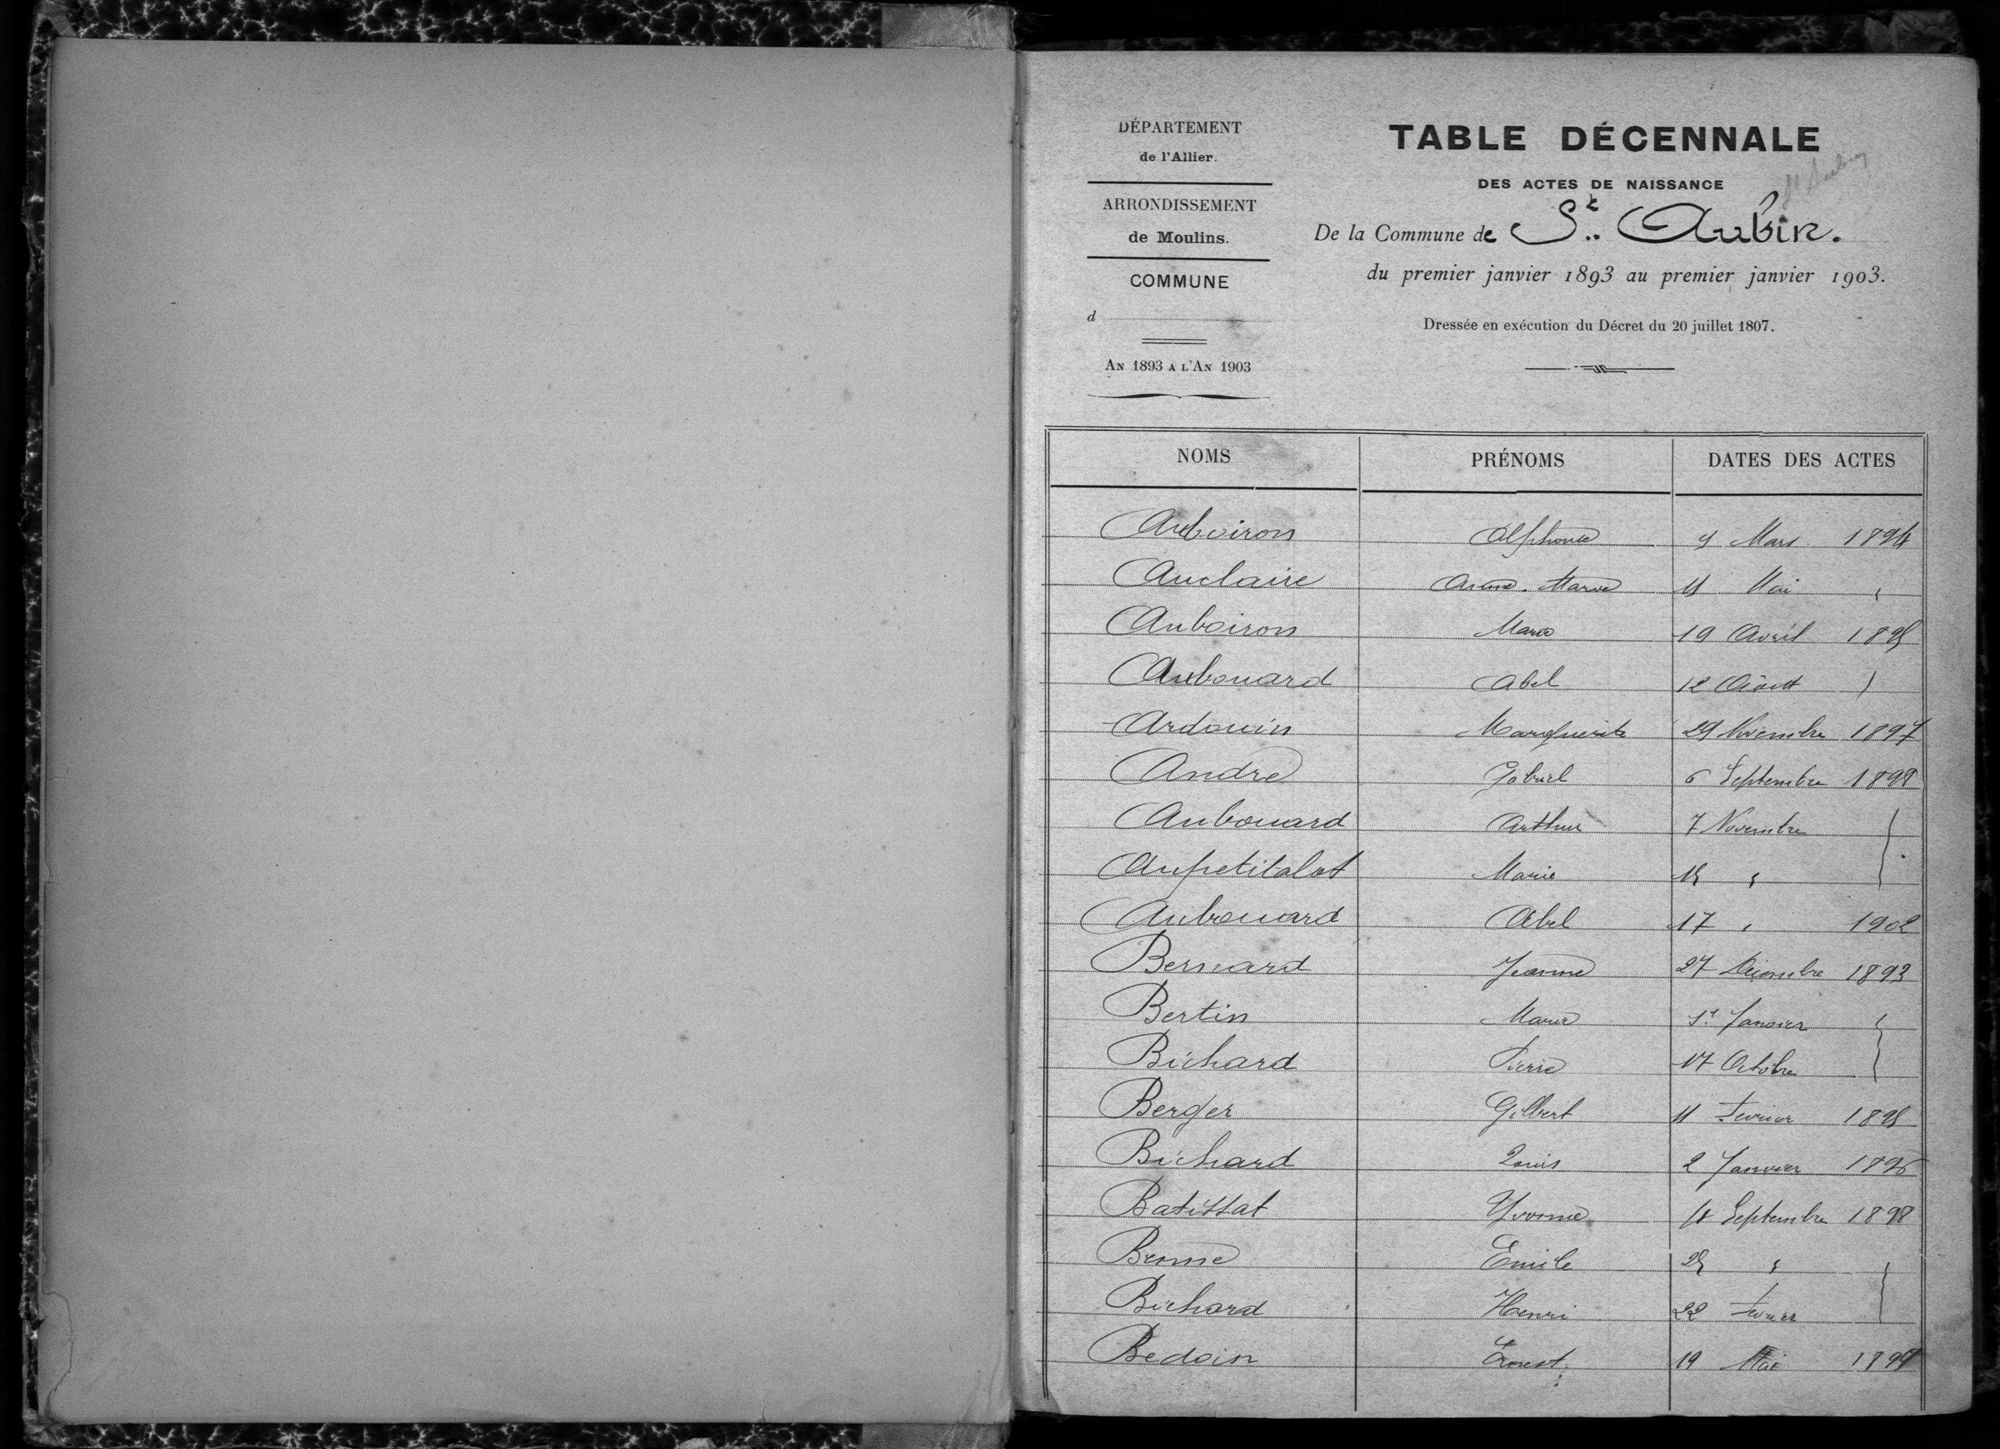 DÉPARTEMENT
de l'Allier.
ARRONDISSEMENT
de Moulins.
COMMUNE
d
AN 1893 A L'AN 1903
TABLE DÉCENNALE
DES ACTES DE NAISSANCE
De la Commune de St. Aubin.
du premier janvier 1893 au premier janvier 1903.
Dressée en exécution du Décret du 20 juillet 1807.
NOMS PRÉNOMS DATES DES ACTES
Auboiron Alphonse 9 Mars 1894
Auclaire Anne-Marie 11 Mai "
Auboiron Marie 19 Avril 1895
Aubouard Abel 12 Août
Ardouin Marguerite 29 Novembre 1897
André Gabriel 6 Septembre 1898
Aubouard Arthur 7 Novembre
Aupetitalot Marie 15 "
Aubouard Abel 17 " 1902
Bernard Jeanne 27 Décembre 1893
Bertin Marie 1er Janvier
Bichard Pierre 17 Octobre
Berger Gilbert 11 Février 1895
Bichard Louis 2 Janvier 1896
Batissat Yvonne Septembre 1898
Emile 25 "
Bichard Henri 22 Février
Bedoin Ernest 19 Mai